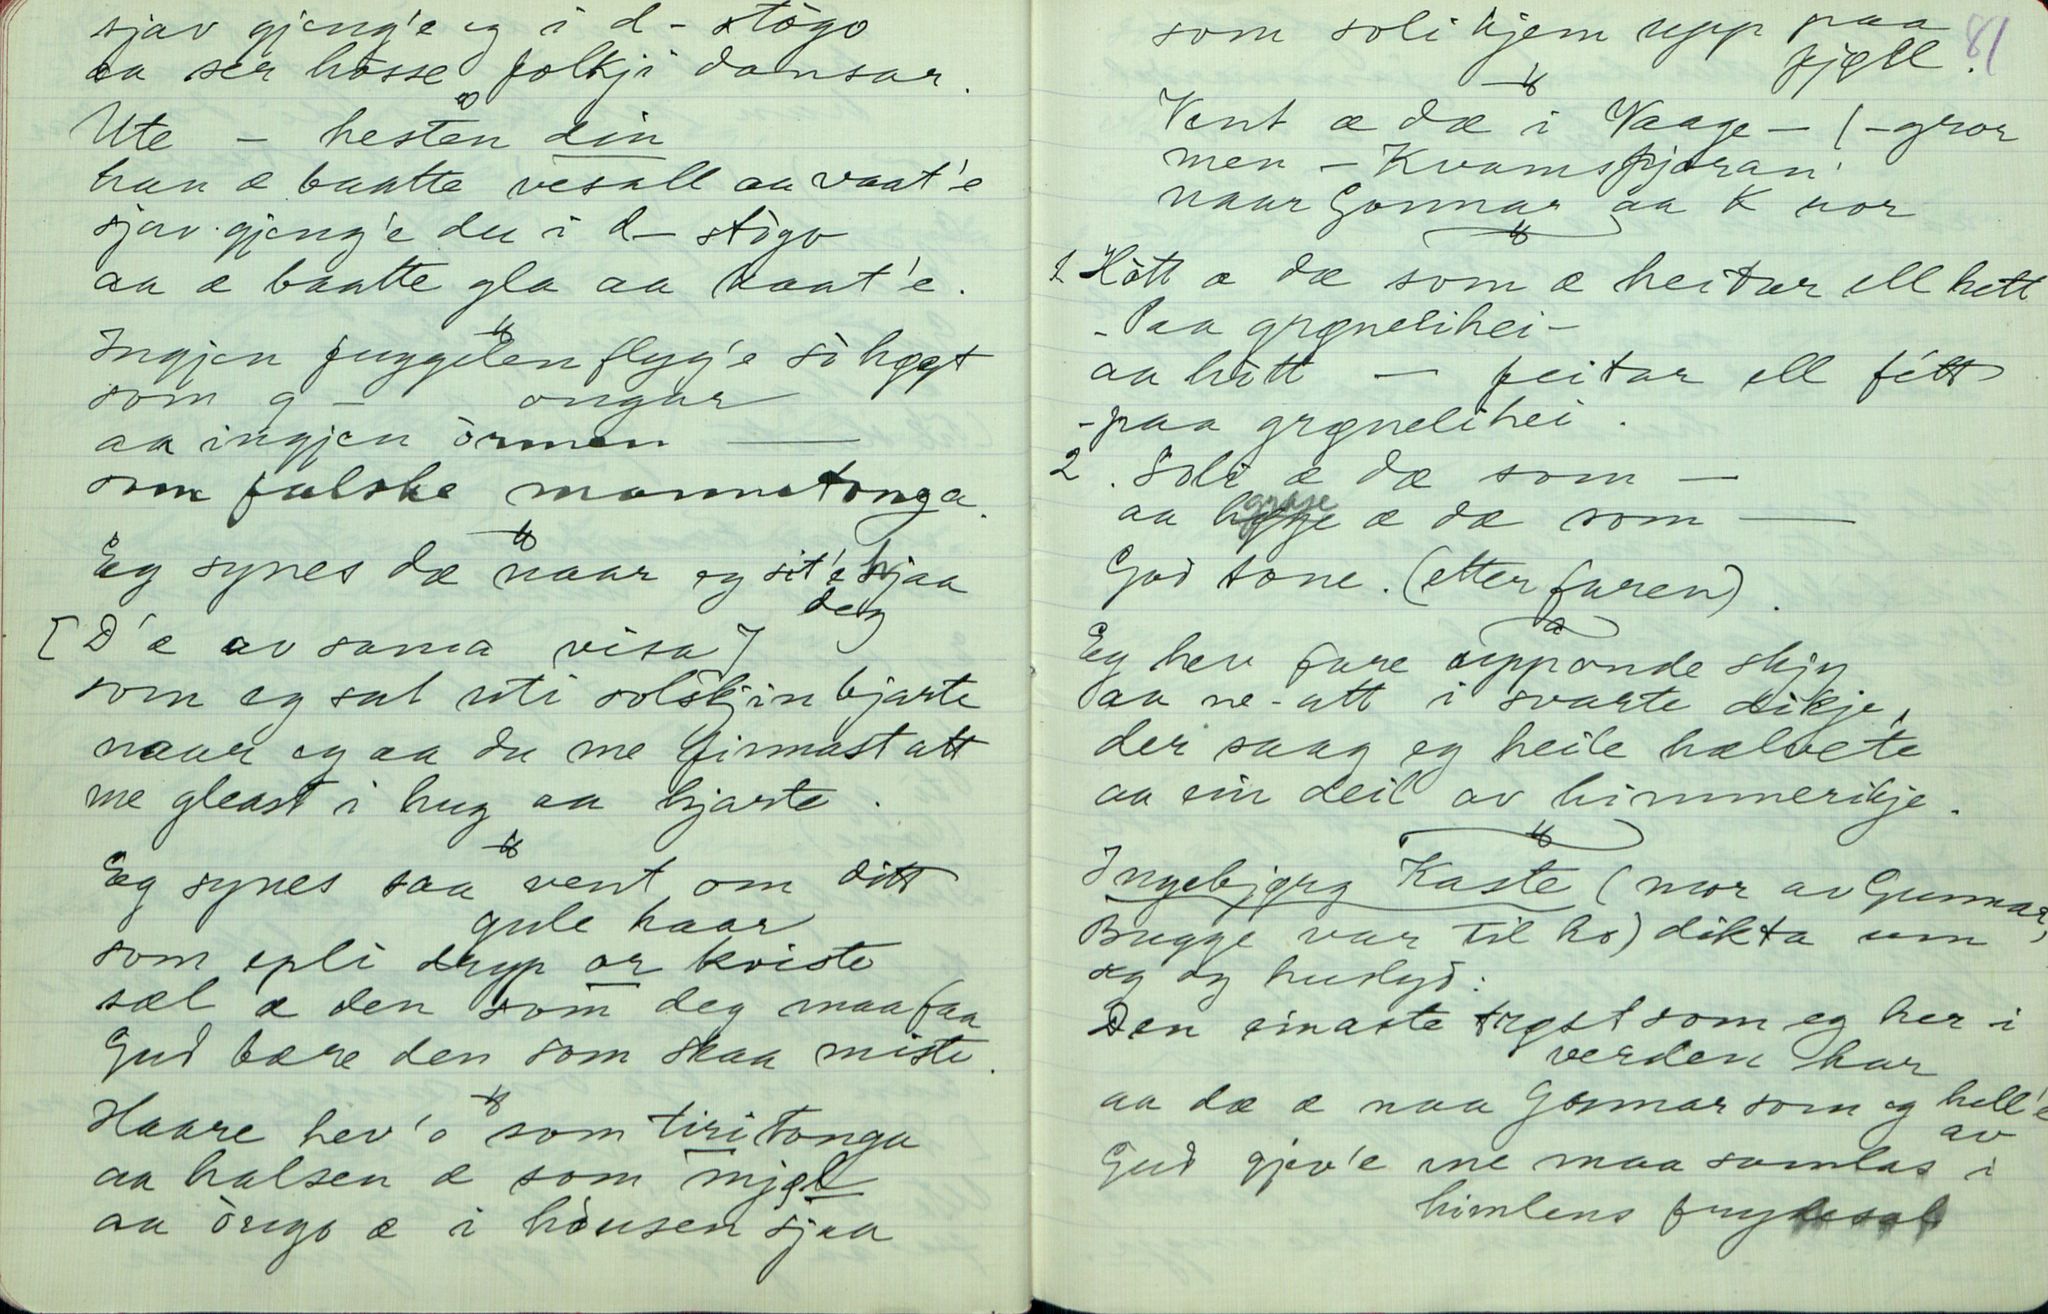 sjav gjeng'e eg i d- stògo
aa ser hòsse folkji dansar.
Ute - hesten din
han æ baatte vesall aa vaat'e
sjav gjeng'e du i d- stògo
aa æ baatte gla aa kaat'e.
Ingjen fuggelen flyg'e sò høgt
som g - ongar
aa ingjen òrmen —
som falske mannetonga.
Eg synes dæ naar eg sit'e hjaa
deg
[D'æ av sama visa]
som eg sat uti solskjin bjarte
naar eg aa du me finnast att
me gleast i hug aa hjarte.
Eg synes saa vent om ditt
gule haar
som epli dryp or kviste
sæl æ den som deg maa faa
Gud bære den som skaa miste.
Haare hev'o som tiritonga
aa halsen æ som mjøll
aa òrigo æ i hòusen sjaa
81
som soli kjem upp paa
fjøll.
Vent æ dæ i Vaage - (- gror
men - Kvamsfjøran'
naar Gonnar aa K ror
1 Hòtt æ dæ som æ heitar ell hett
- Paa grønelihei -
aa hòtt — feitar ell fétt
- paa grønelihei.
2. Soli æ dæ som —
aa grase æ dæ som —
God tone. (etter faren).
Eg hev fare upponde skjy
aa ne-att i svarte dikje,
der saag eg heile hælvete
aa ein deil av himmerikje.
Ingebjørg Kaste (mor av Gunnar
Bugge var til ho) dikta um
seg og huslyd:
Den einaste trøst som eg her i
verden har
aa dæ æ naa Gonnar som eg hell'e
av
Gud gjev'e me maa samlas i
himlens frydesal